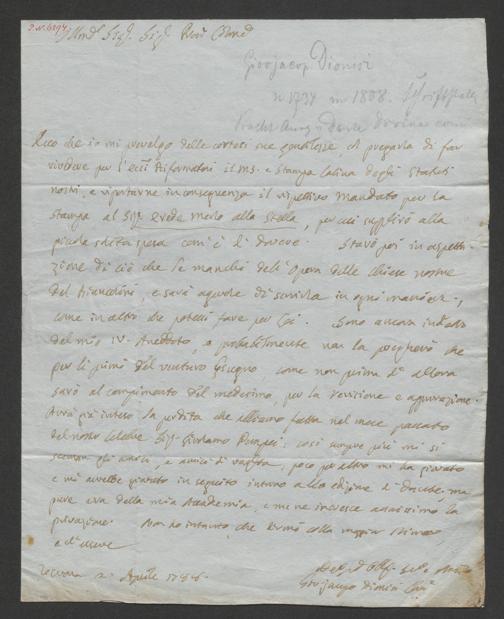 Giovjacopo Dionisi
n 1734 m 1808. Schriftstell
Ecco che io mi prevalgo delle cortesi sue gentilezze, di pregarla di far
vivere per l' Riformatori il MS. e stampa latina degli Statuti
nostri, e riportarne in conseguenza il rispettivo mandato per la
stampa al Sig. Erede Merlo alla Stella, per cui supplirò alla
piccola solita spesa com' è il dovere. Starò poi in aspetta-
zione di ciò che le manchi dell' Opera delle Chiese nostre
del Biancolini, e sarà agevole di servirla in ogni maniera,
come in altro che potessi fare per Lei. Sono ancora indietro
del mio IV. Aneddoto, e probabilmente non la pregherò che
per li primi del venturo Giugno come non prima d' allora
sarò al compimento del medesimo, per la revisione e approvazione.
Avrà già inteso la perdita che abbiamo fatta nel mese passato
del nostro celebre Sig. Girolamo Pompei: così sempre più mi si
scemano gli amici, e amici di vaglia, poco per altro mi ha giovato
e mi avrebbe giovato in seguito intorno alla edizione di Dante, ma
pure era della mia Accademia, e me ne incresce assaissimo la
privazione. Non ho intanto che
e di cuore
Verona 2. Aprile 1788.
Giovjacopo Dionisi Can.